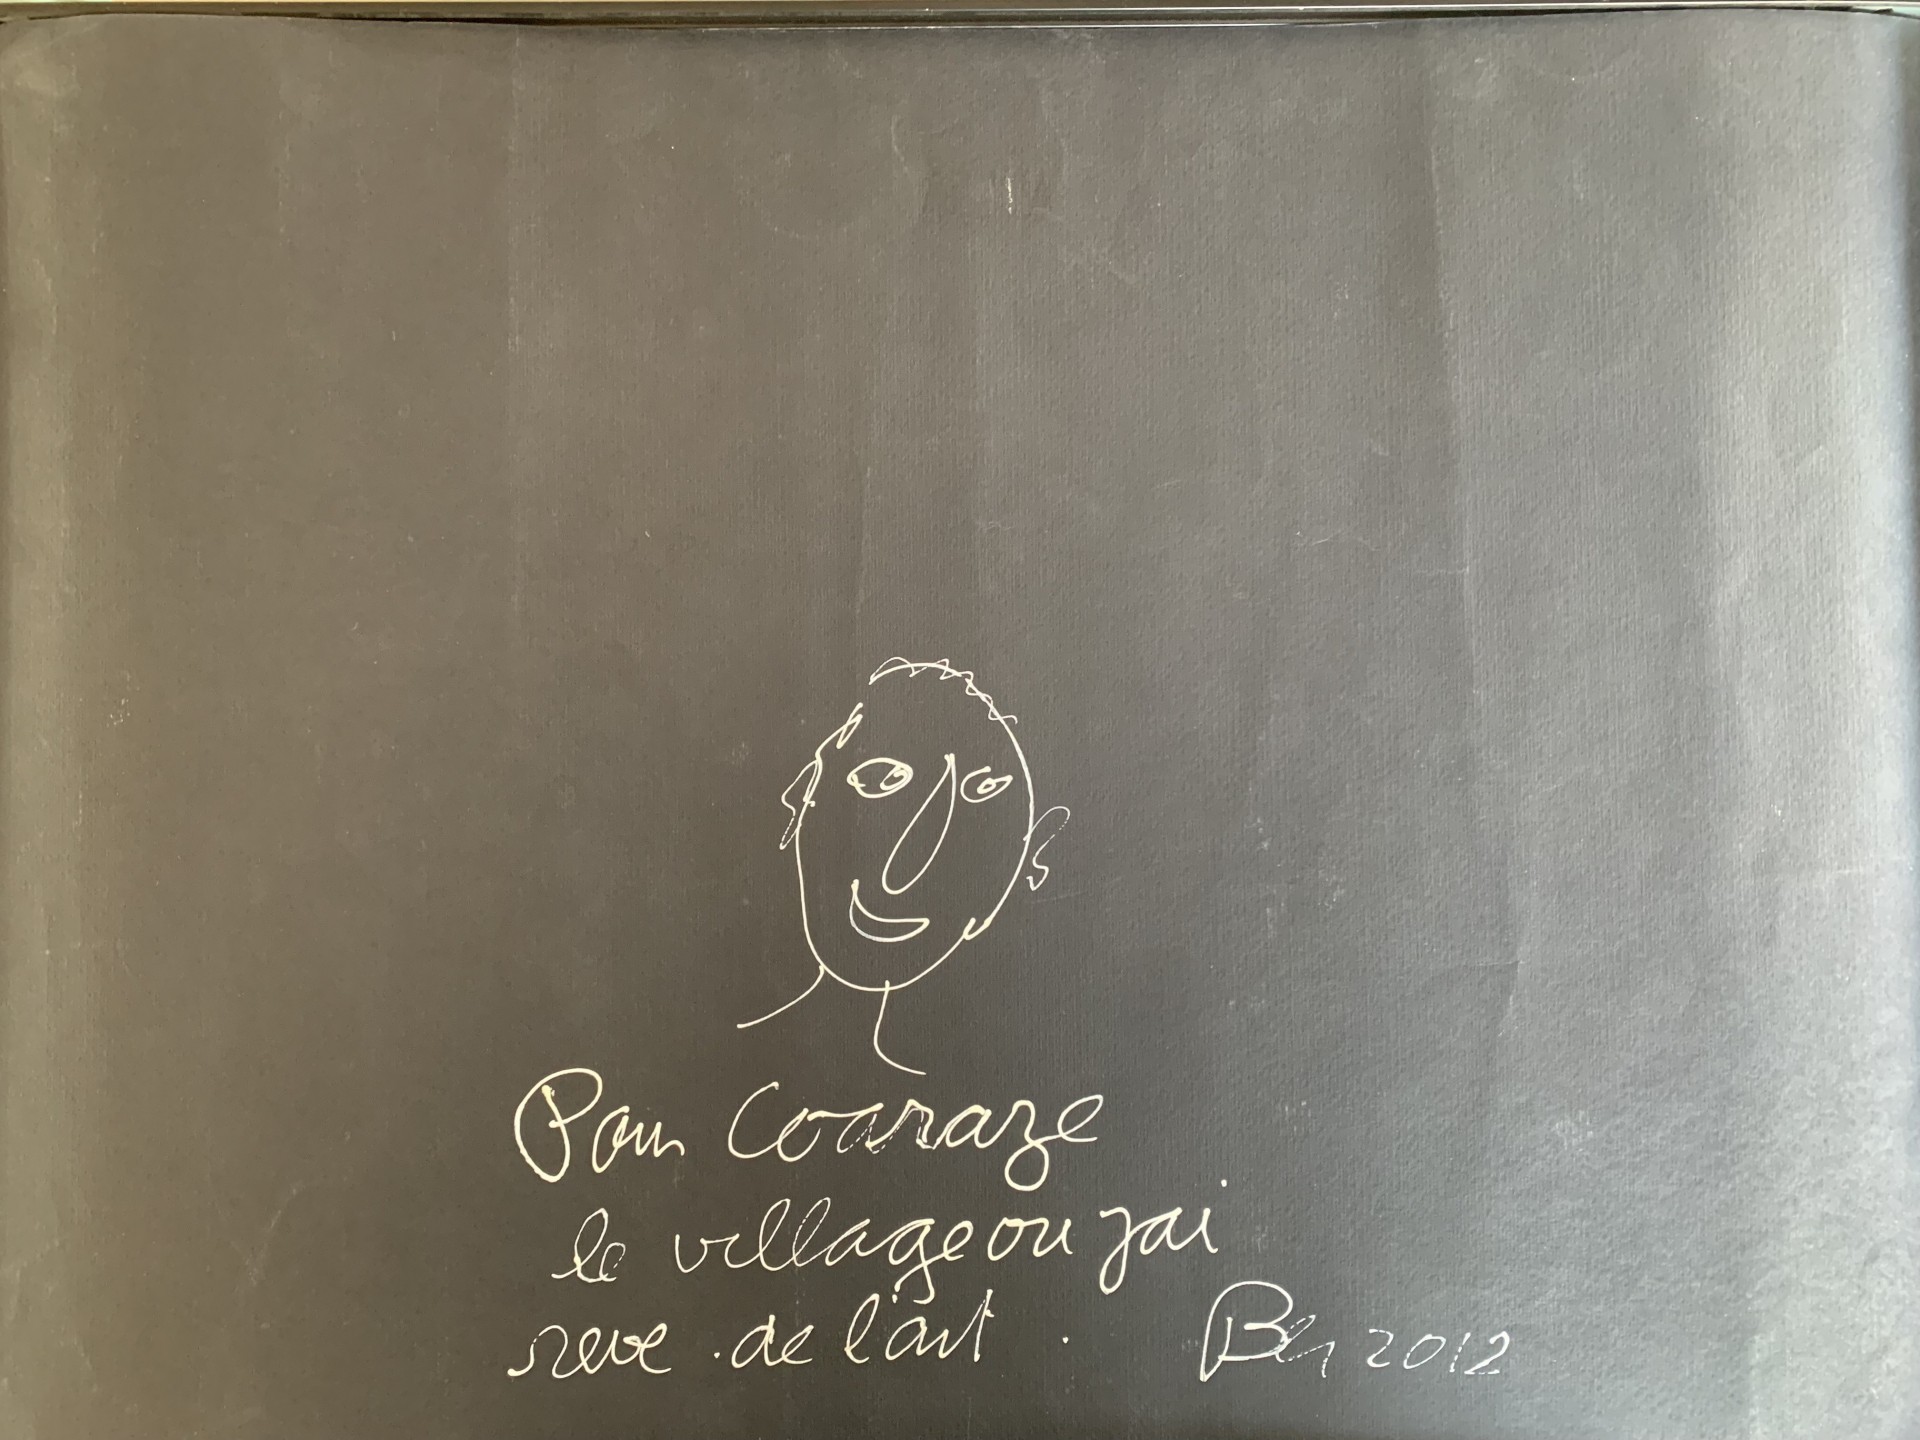 Pour Coaraze
le village ou j'ai
reve de l'art. Ben 2012